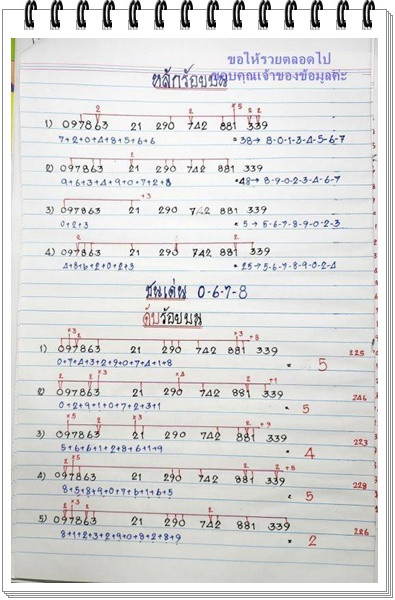 ขอให้รวยตลอดไป
ขอบคุณเจ้าของข้อมูลค่ะ
หลักร้อยบน
2 2 x5 2 2
1) 097863 21 290 742 881 339
7+2+0+4+8+5+6+6 = 38→ 8-0-1-3-4-5-6-7
2
2) 097863 21 290 742 881 339
9+6+3+4+9+0+7+2+8 = 48→ 8-9-0-2-3-4-6-7
+3
3) 097863 21 290 742 881 339
0+2+3 = 5→ 5-6-7-8-9-0-2-3
2 2
4) 097863 21 290 742 881 339
4+8+6+2+0+2+3 = 25→ 5-6-7-8-9-0-2-4
ชนเด่น 0-6-7-8
ดับร้อยบน
x3 x3 +8
1) 097863 21 290 742 881 339
0+7+4+3+2+9+0+7+4+1+8 = 5 225
2 2 x3 x4 2 +1
2) 097863 21 290 742 881 339
0+2+9+1+0+7+2+3+1 = 5 246
x5 x3 +9
3) 097863 21 290 742 881 339
5+6+6+1+2+8+6+1+9 = 4 223
2 x5 2 2 +5
4) 097863 21 290 742 881 339
8+5+8+9+0+7+6+1+6+5 = 5 228
2 x3 2 2
5) 097863 21 290 742 881 339
8+1+2+3+2+9+0+8+2+8+9 = 2 226